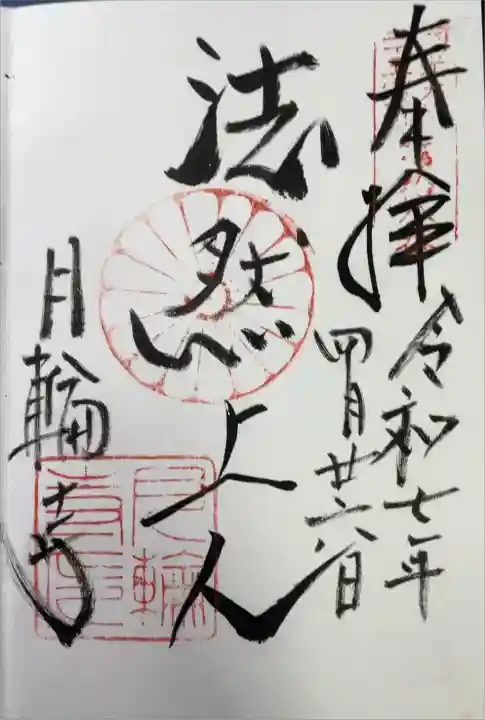 奉拝
令和七年
四月廿六日
法然上人
月輪寺
月輪
寺印